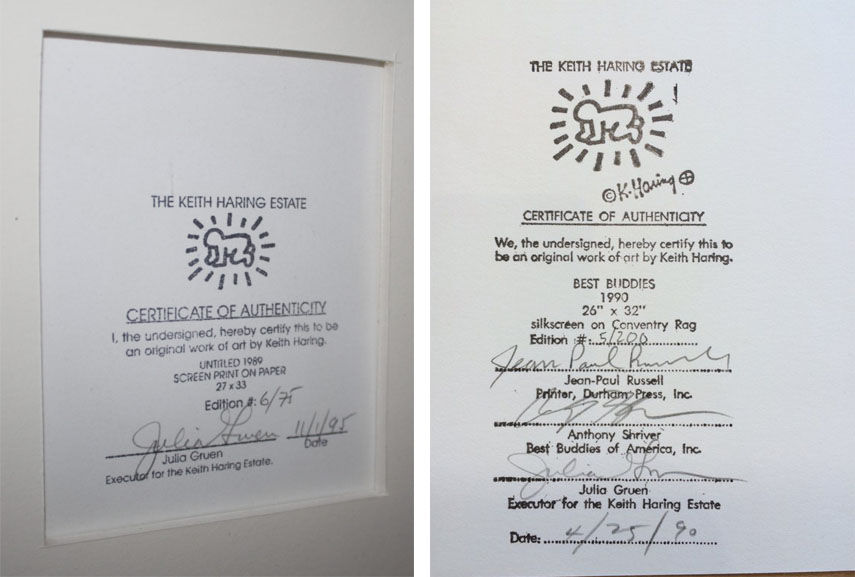 THE KEITH HARING ESTATE
CERTIFICATE OF AUTHENTICITY
I, the undersigned, hereby certify this to be
an original work of art by Keith Haring.
UNTITLED 1989
SCREEN PRINT ON PAPER
27 x 33
Edition #: 6/75
Julia Gruen 11/1/95
Julia Gruen Date
Executor for the Keith Haring Estate.
THE KEITH HARING ESTATE
© K. Haring
CERTIFICATE OF AUTHENTICITY
We, the undersigned, hereby certify this to
be an original work of art by Keith Haring.
BEST BUDDIES
1990
26" x 32"
silkscreen on Conventry Rag
Edition #: 5/200
Jean Paul Russell
Jean-Paul Russell
Printer, Durham Press, Inc.
Anthony Shriver
Best Buddies of America, Inc.
Julia Gruen
Julia Gruen
Executor for the Keith Haring Estate
Date: 4/25/90